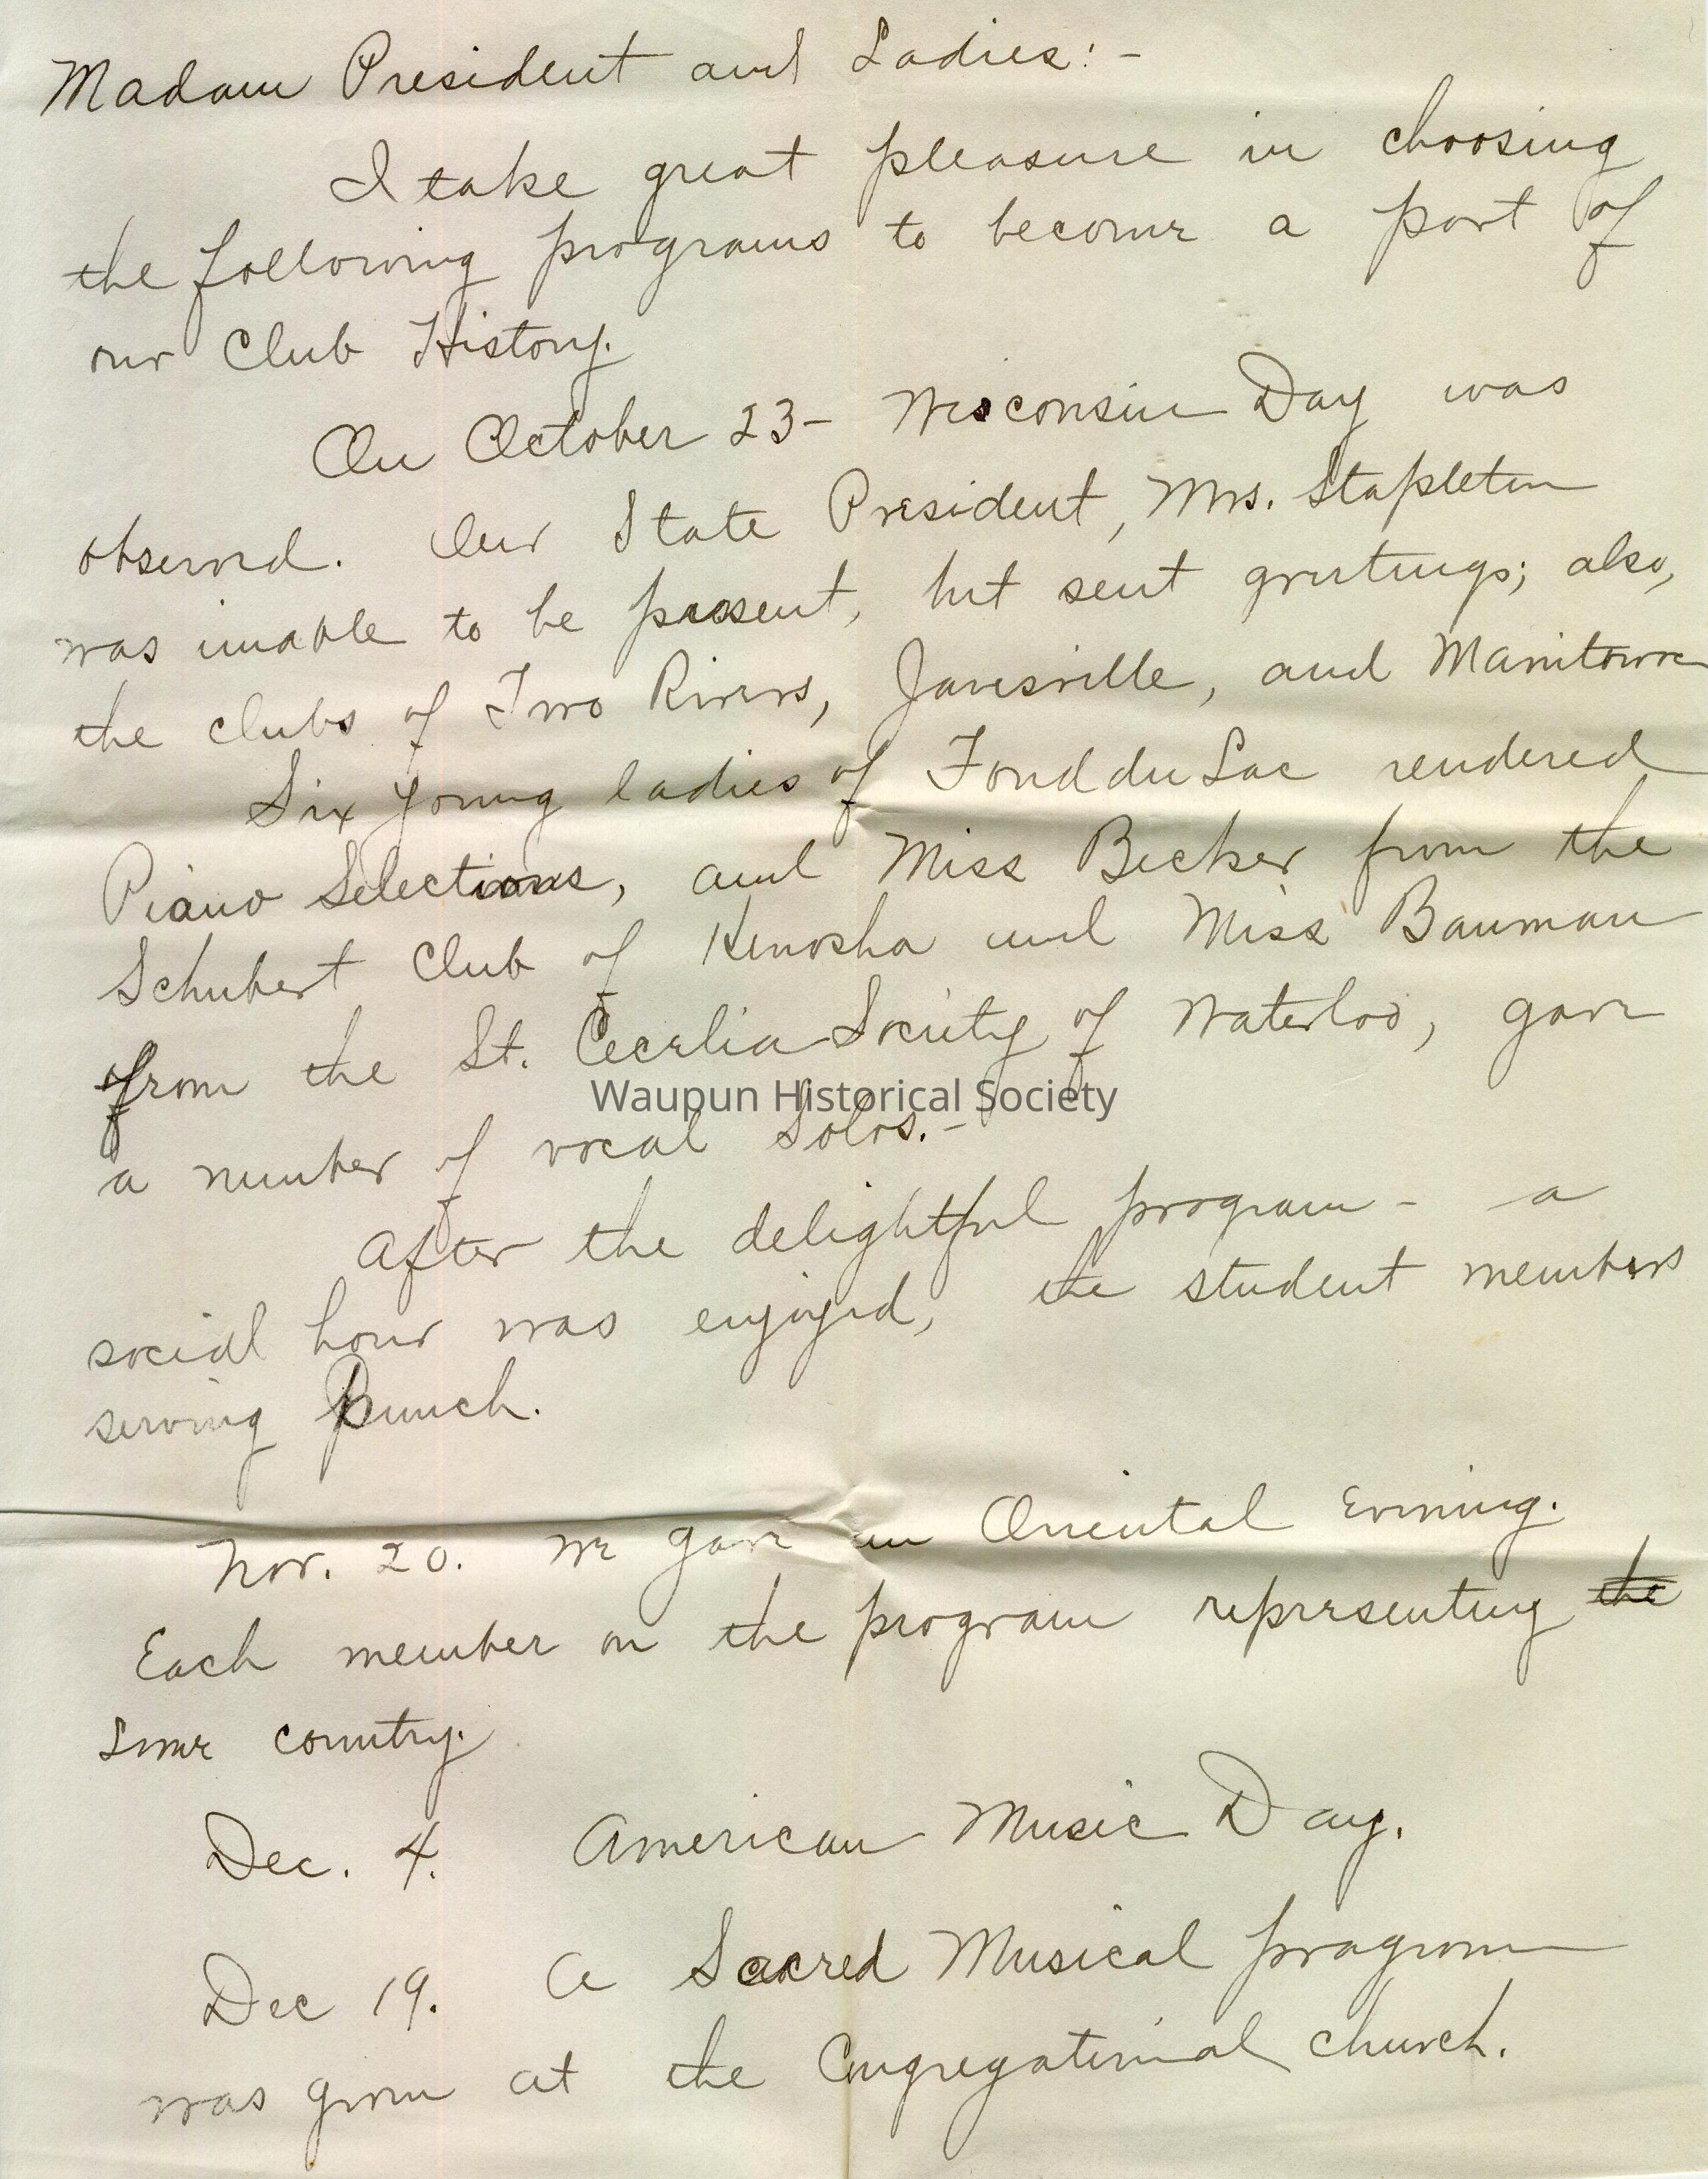 Madam President and Ladies:-
I take great pleasure in choosing
the following programs to become a part of
our Club History.
On October 23- Wisconsin Day was
observed. Our State President, Mrs. Stapleton
was unable to be present, but sent greetings; also,
the clubs of Two Rivers, Janesville, and Manitowoc
Six young ladies of Fond du Lac rendered
Piano Selections, and Miss Becker from the
Schubert Club of Kenosha and Miss Bauman
from the St. Cecelia Society of Waterloo, gave
Waupun Historical Society
a number of vocal Solos.-
After the delightful program - a
social hour was enjoyed, the student members
serving Punch.
Nov. 20. We gave an Oriental Evening.
Each member on the program representing the
some country.
Dec. 4. American Music Day.
Dec 19. A Sacred Musical program
was given at the Congregational church.